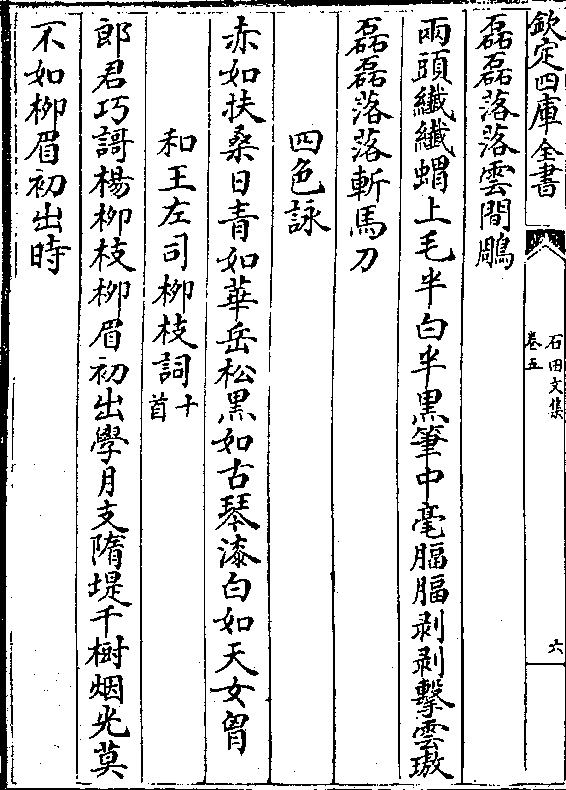 欽定四庫全書
石田文集
卷五
六
磊磊落落雲間鵰
兩頭纖纖蝟上毛半白半黑筆中毫腷腷剥剥擊雲璈
磊磊落落斬馬刀
四色詠
赤如扶桑日青如華岳松黑如古琴漆白如天女胷
和王左司柳枝詞十首
郎君巧謌楊柳枝柳眉初出學月支隋堤千樹烟光莫
不如柳眉初出時